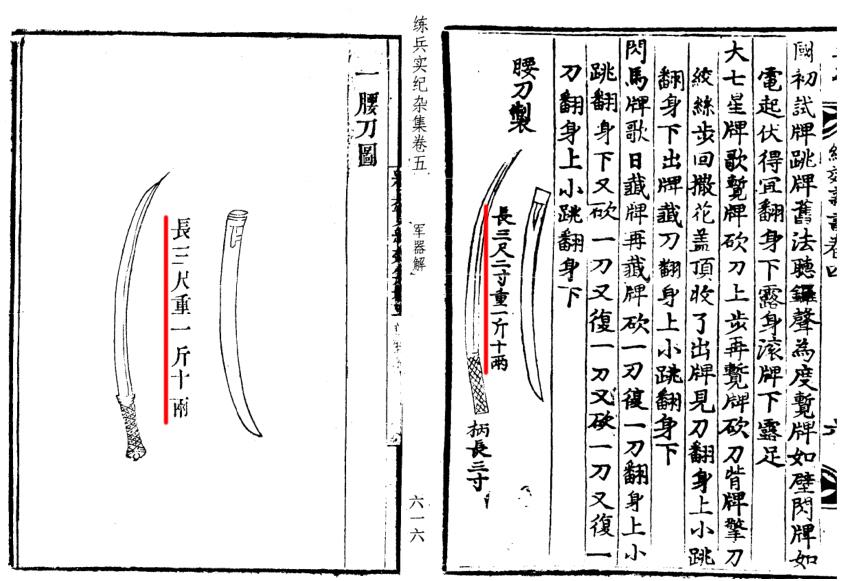 國初試牌跳牌舊法聽鑼聲為度蹔牌如壁閃牌如
電起伏得宜翻身下露身滚牌下露足
大七星牌歌蹔牌砍刀上步再蹔牌砍刀背牌擎刀
絞絲步回撒花盖頂收了出牌見刀翻身上小跳
翻身下出牌藏刀翻身上小跳翻身下
閃馬牌歌曰藏牌再藏牌砍一刀復一刀翻身上小
跳翻身下又砍一刀又復一刀又砍一刀又復一
刀翻身上小跳翻身下
腰刀製
長三尺二寸重一斤十兩
柄長三寸
练兵实纪杂集卷五
军器解
六一六
一腰刀圖
長三尺重一斤十兩